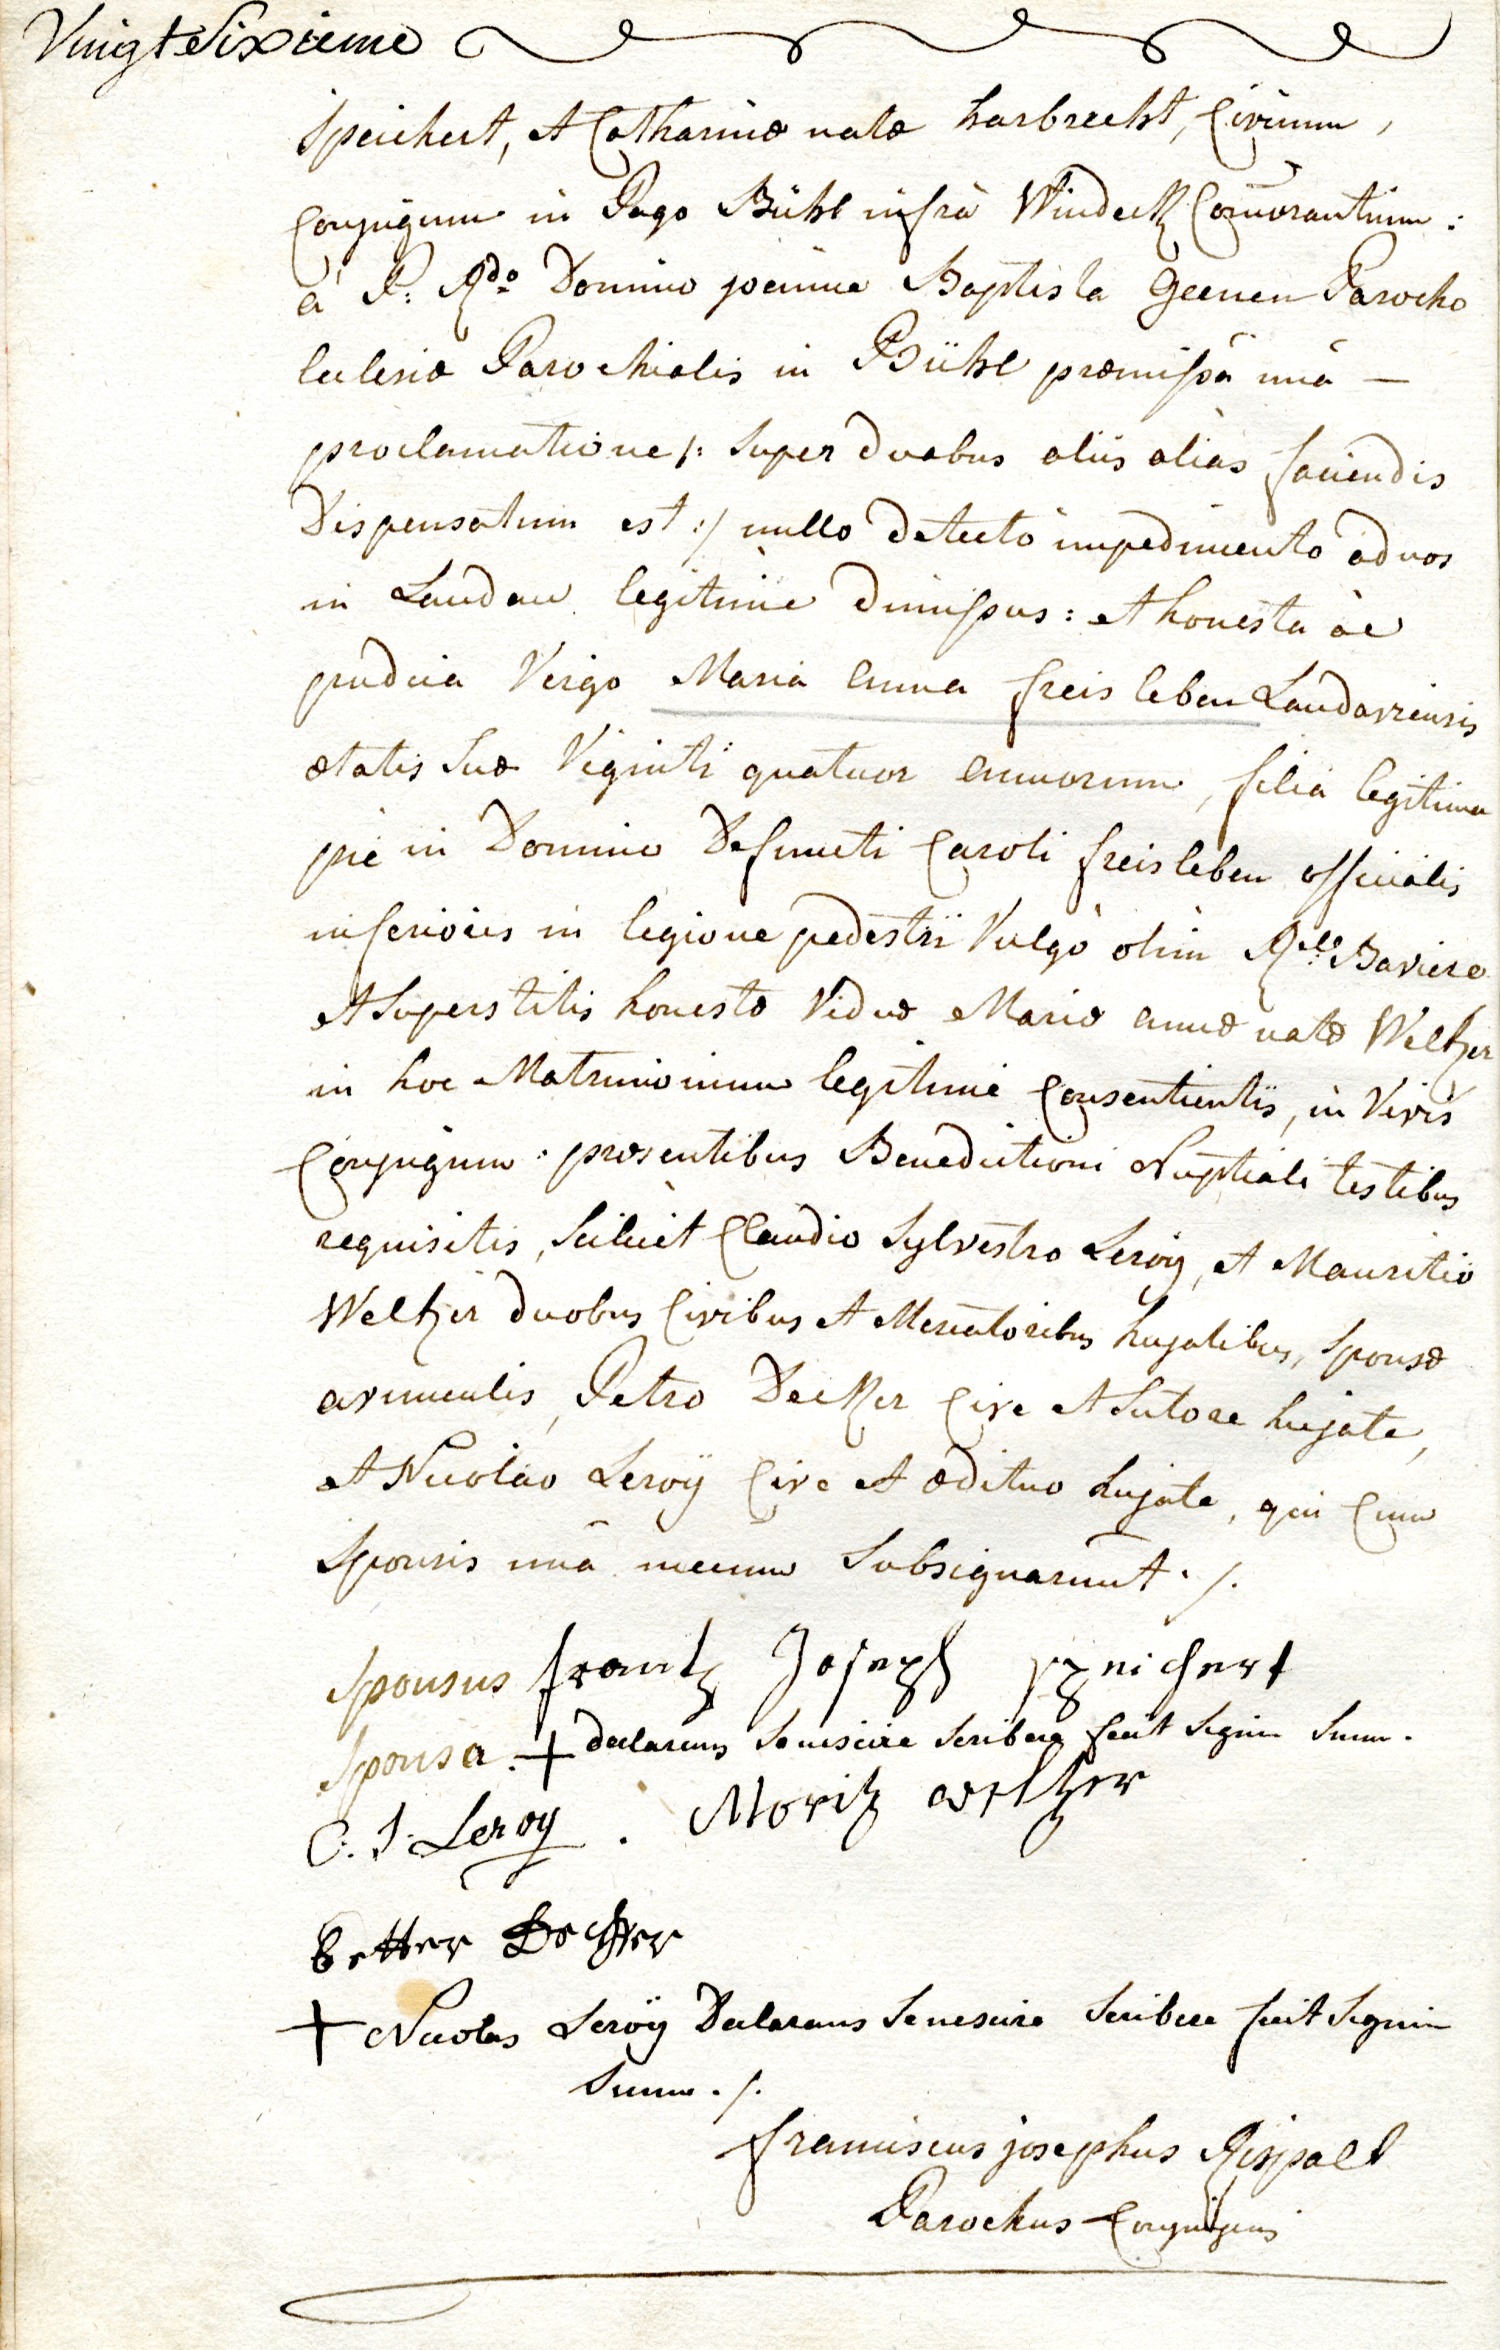 Vingt Sixieme
Speichert, et Catharinæ natæ harbrecht, Civium,
Conjugum in Pago Bühl infrà Windeck Comorantium:
à P: Rdo Domino joanne Baptista Geenen Parocho
Ecclesiæ Parochialis in Bühl præmissâ unâ —
proclamatione /: super duabus aliis aliàs faciendis
Dispensatum est :/ nullo detecto impedimento ad nos
in Landau legitimè dimissus: et honesta àc
pudica Virgo Maria Anna freisleben Landaviensis
ætatis suæ Viginti quatuor annorum, filia legitima
piè in Domino Defuncti Caroli freisleben officialis
inferioris in legione pedestri Vulgò olim Rle Baviere
et Superstitis honestæ Viduæ Mariæ annæ natæ Weltzer
in hoc Matrimonium legitimè Consentientis, in Vivis
Conjugum: præsentibus Benedictioni Nuptiali testibus
requisitis, Scilicèt Claudio Sylvestro Leroÿ, et Mauritio
Weltzer duobus Civibus et Mercatoribus hujatibus, Sponsæ
avunculis, Petro Decker Cive et Sutore hujate,
et Nicolao Leroÿ Cive et ædituo hujate, qui Cum
Sponsis unâ mecum Subsignarunt ./.
Sponsus frantz Joseph Speichert
Sponsa. + declarans se nescire scribere fecit signum suum.
C. S. Leroy. Moritz Weltzer
Better Decker
+ Nicolas Leroÿ Declarans se nescire scribere fecit signum
suum ./.
franciscus josephus Rispalt
Parochus Conjungens